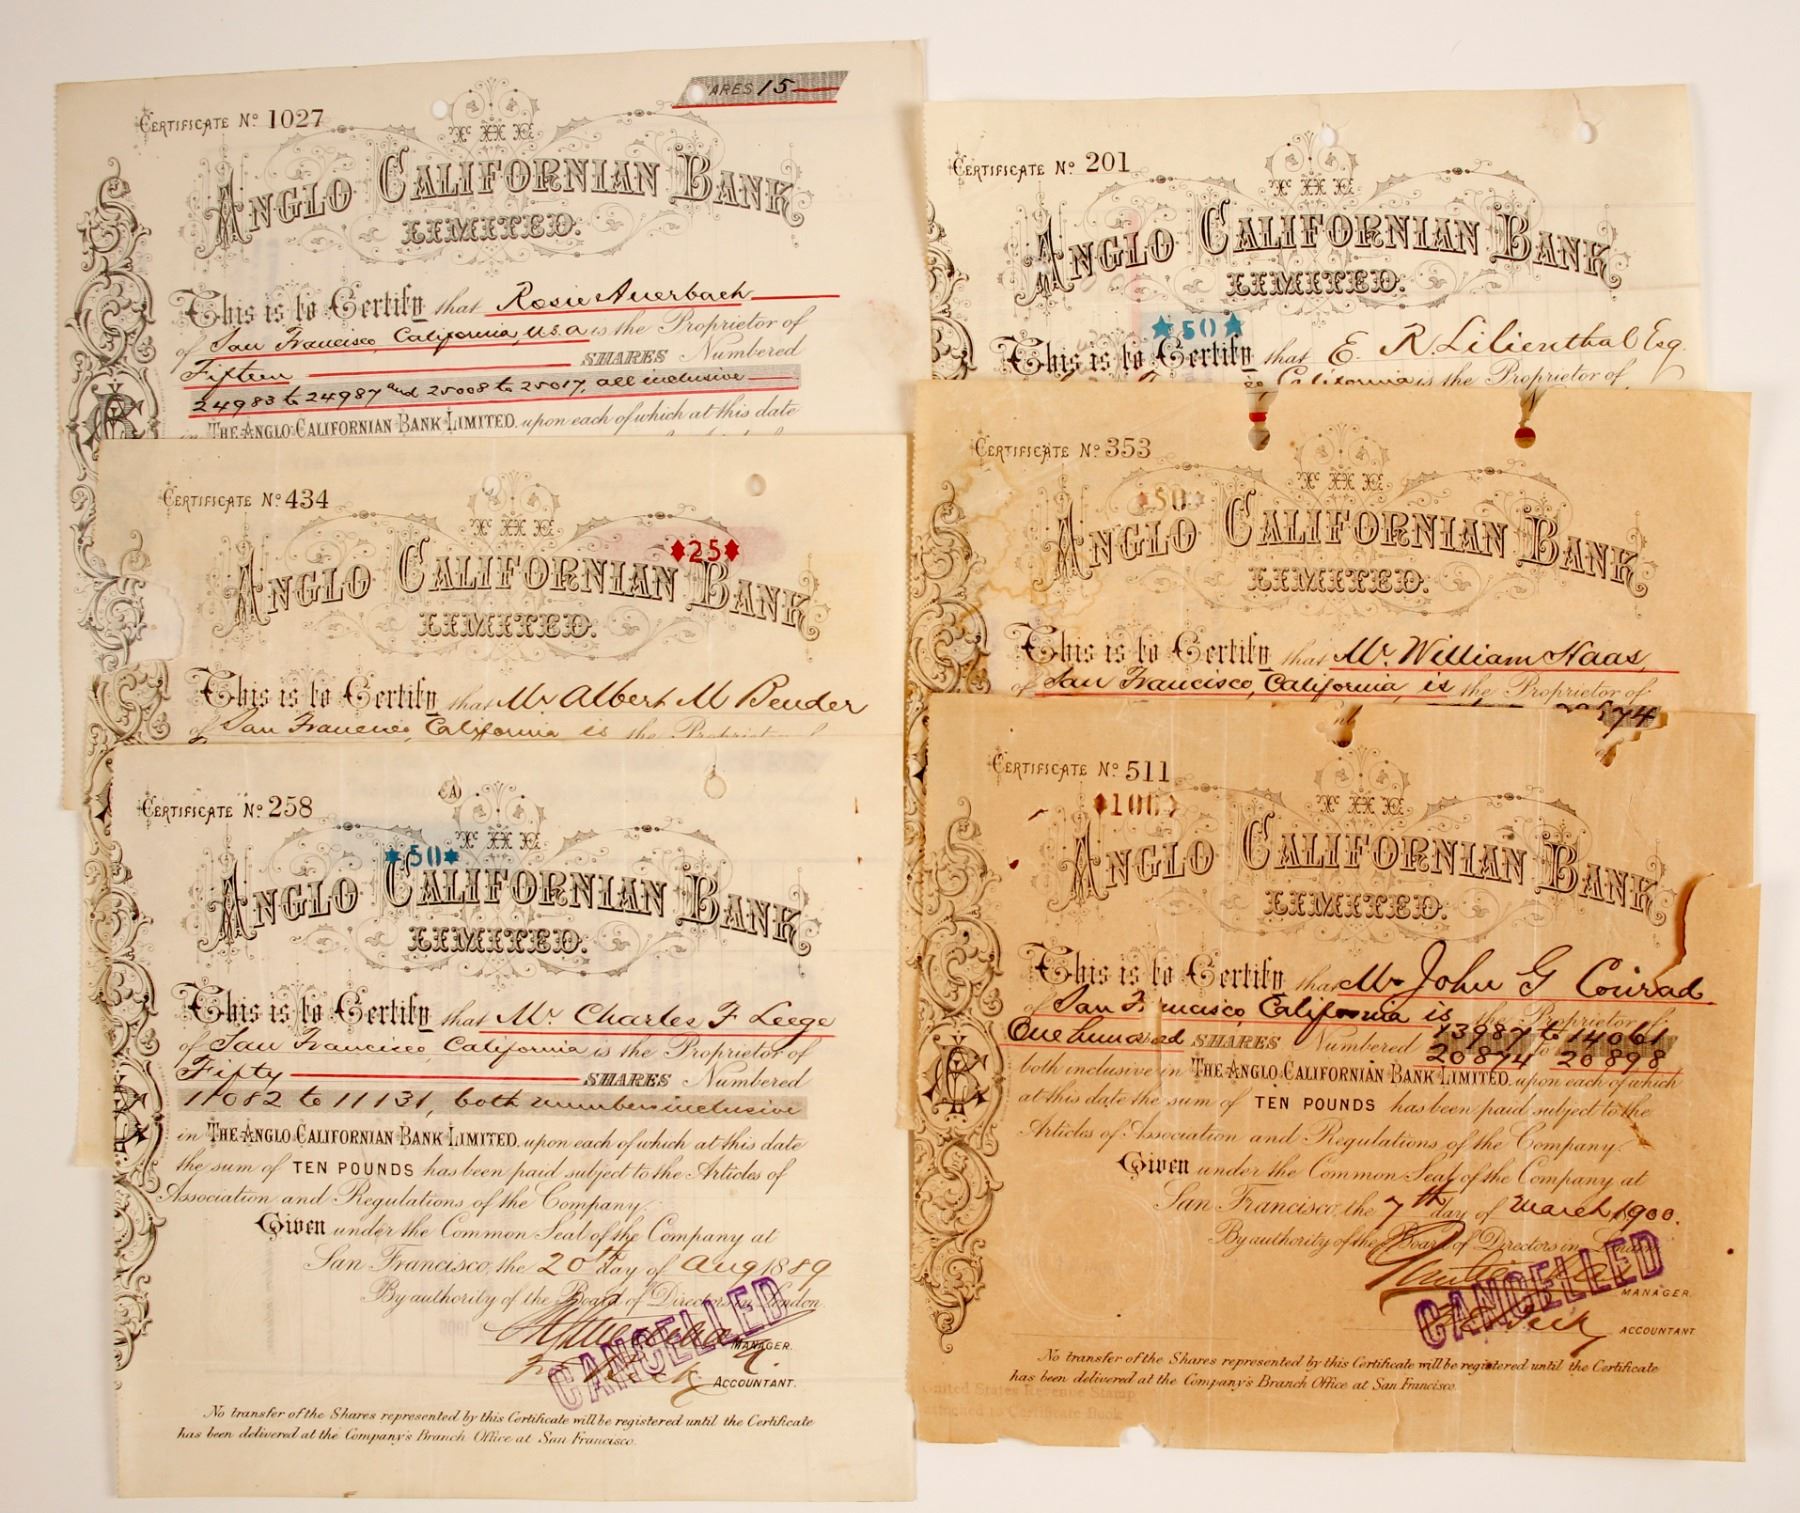 CERTIFICATE No. 1027
ARES 15
THE
ANGLO CALIFORNIAN BANK
LIMITED.
This is to Certify that Rosie Auerbach
of San Francisco, California, U.S.A is the Proprietor of
Fifteen SHARES Numbered
24983 to 24987 and 25008 to 25017, all inclusive
in THE ANGLO CALIFORNIAN BANK LIMITED, upon each of which at this date
CERTIFICATE No. 434
THE
25
ANGLO CALIFORNIAN BANK
LIMITED.
This is to Certify that Mr Albert M Bender
of San Francisco, California is the Proprietor of
CERTIFICATE No. 258
THE
50
ANGLO CALIFORNIAN BANK
LIMITED.
This is to Certify that Mr. Charles F Leege
of San Francisco, California is the Proprietor of
Fifty SHARES Numbered
11082 to 11131, both numbers inclusive
in THE ANGLO CALIFORNIAN BANK LIMITED, upon each of which at this date
the sum of TEN POUNDS has been paid subject to the Articles of
Association and Regulations of the Company.
Given under the Common Seal of the Company at
San Francisco, the 20th day of Aug 1889
By authority of the Board of Directors in London
MANAGER.
CANCELLED
ACCOUNTANT.
No transfer of the Shares represented by this Certificate will be registered until the Certificate
has been delivered at the Company's Branch Office at San Francisco.
CERTIFICATE No. 201
THE
ANGLO CALIFORNIAN BANK
LIMITED.
50
This is to Certify that E. R. Lilienthal Esq.
California is the Proprietor of
CERTIFICATE No. 353
THE
50
ANGLO CALIFORNIAN BANK
LIMITED.
This is to Certify that Mr. William Haas,
of San Francisco, California, is the Proprietor of
CERTIFICATE No. 511
THE
100
ANGLO CALIFORNIAN BANK
LIMITED.
This is to Certify that Mr John G Conrad
of San Francisco, California is the Proprietor of
One hundred SHARES Numbered 13987 to 14061
20874 to 20898
both inclusive in THE ANGLO CALIFORNIAN BANK LIMITED, upon each of which
at this date the sum of TEN POUNDS has been paid subject to the
Articles of Association and Regulations of the Company.
Given under the Common Seal of the Company at
San Francisco, the 7th day of March 1900.
By authority of the Board of Directors in London
MANAGER.
CANCELLED
ACCOUNTANT
No transfer of the Shares represented by this Certificate will be registered until the Certificate
has been delivered at the Company's Branch Office at San Francisco.
United States Revenue Stamp
attached to Certificate Book